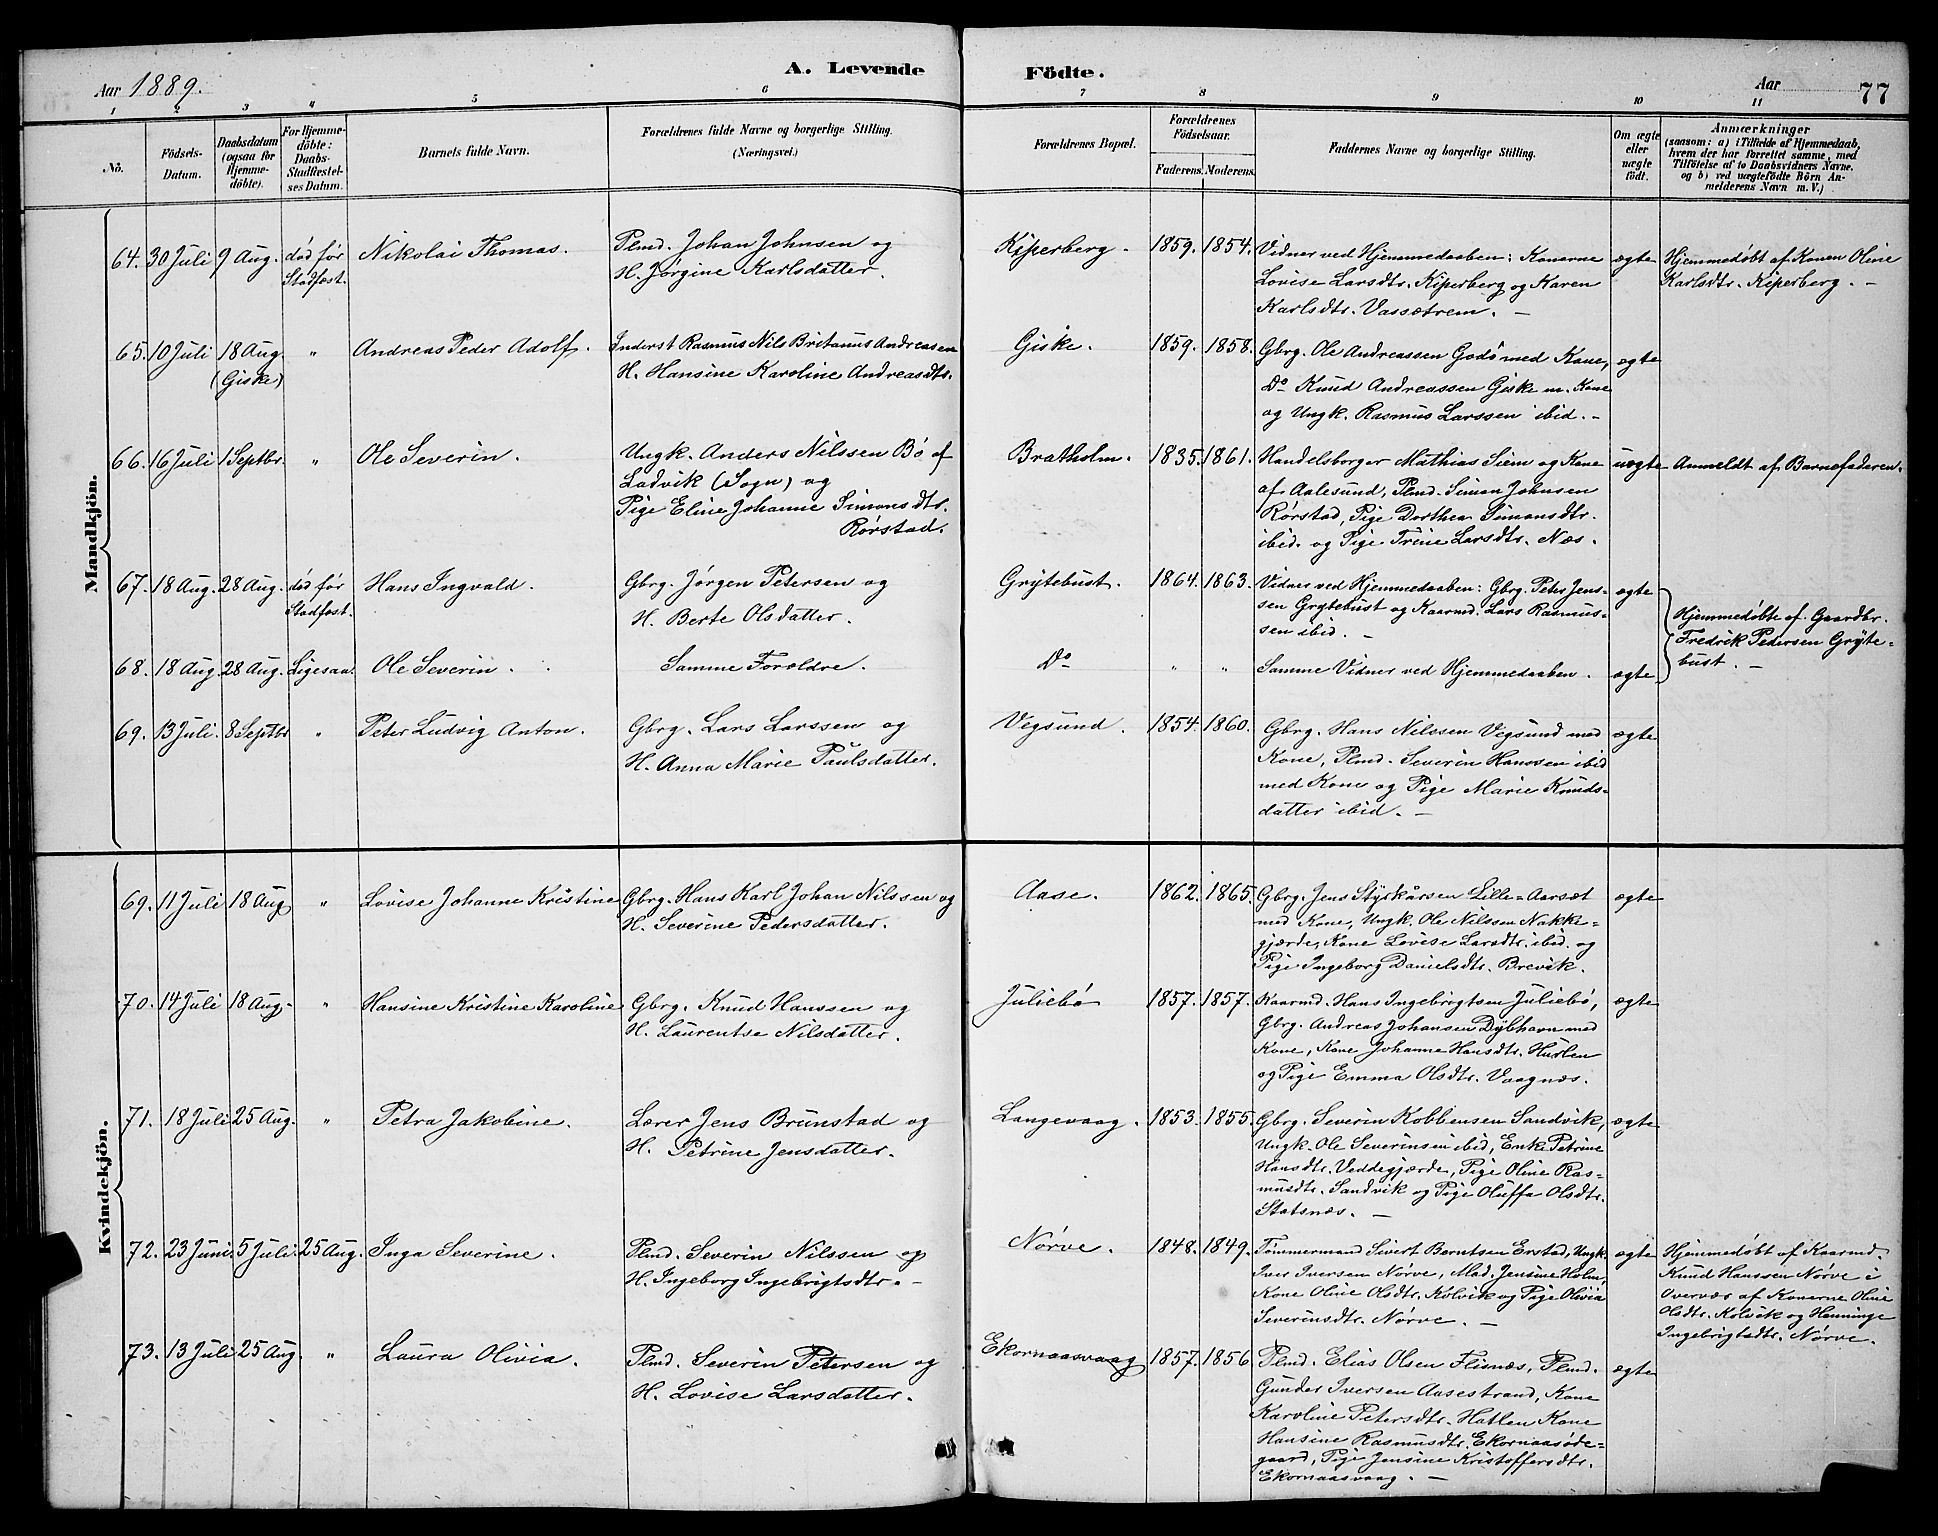 Aar 1889.
A. Levende Födte.
Aar
77
1 2 3 4 5 6 7 8 9 10 11
No.
Födsels-
Datum.
Daabsdatum
(ogsaa for
Hjemme-
döbte).
For Hjemme-
döbte:
Daabs-
Stadfæstel-
ses Datum.
Barnets fulde Navn.
Forældrenes fulde Navne og borgerlige Stilling.
(Næringsvei.)
Forældrenes Bopæl.
Forældrenes
Födselsaar.
Faderens. Moderens.
Faddernes Navne og borgerlige Stilling.
Om ægte
eller
uægte
födt.
Anmærkninger
(saasom: a) i Tilfælde af Hjemmedaab,
hvem der har forrettet samme, med
Tilföielse af to Daabsvidners Navne.
og b) ved uægtefödte Börn An-
melderens Navn m. V.)
Mandkjön.
64. 30 Juli 9 Aug. død før
Stadfæst.
Nikolai Thomas.
Plmd. Johan Johnsen og
H. Jørgine Karlsdatter.
Kiperberg. 1859. 1854.
Vidner ved Hjemmedaaben: Konerne
Lovise Larsdtr. Kiperberg og Karen
Karlsdtr. Vassetrem. —
ægte
Hjemmedøbt af Konen Oline
Karlsdtr. Kiperberg. —
65. 10 Juli 18 Aug. "
(Giske)
Andreas Peder Adolf.
Inderst Rasmus Nils Britanus Andreasen
H. Hansine Karoline Andreasdtr.
Giske. 1859. 1858.
Gbrg. Ole Andreassen Godø med Kone,
Do Knud Andreassen Giske m. Kone
og Ungk. Rasmus Larssen ibid. —
ægte
66. 16 Juli 1 Septbr. "
Ole Severin.
Ungk. Anders Nilssen Bø af
Ladvik (Sogn) og
Pige Eline Johanne Simonsdtr.
Rørstad.
Bratholm. 1835. 1861.
Handelsborger Mathias Siem og Kone
af Aalesund, Plmd. Simon Johnsen
Rørstad, Pige Dorthea Simonsdtr.
ibid. og Pige Trine Larsdtr. Næs.
uægte
Anmeldt af Barnefaderen.
67. 18 Aug. 28 Aug. død før
Stadfæst.
Hans Ingvald.
Gbrg. Jørgen Petersen og
H. Berte Olsdatter.
Grytebust. 1864. 1863.
Vidner ved Hjemmedaaben: Gbrg. Peter Jens-
sen Grytebust og Kaarmd. Lars Rasmus-
sen ibid. —
ægte
Hjemmedøbte af Gaardbr.
Fredrik Pedersen Gryte-
bust. —
68. 18 Aug. 28 Aug. Ligesaa.
Ole Severin.
Samme Forældre.
Do " "
Samme Vidner ved Hjemmedaaben.
ægte
69. 13 Juli. 8 Septbr "
Peter Ludvig Anton.
Gbrg. Lars Larssen og
H. Anna Marie Paulsdatter.
Vegsund. 1854. 1860.
Gbrg. Hans Nilssen Vegsund med
Kone, Plmd. Severin Hanssen ibid
med Kone og Pige Marie Knuds-
datter ibid. —
ægte
Kvindekjön.
69. 11 Juli 18 Aug "
Lovise Johanne Kristine
Gbrg. Hans Karl Johan Nilssen og
H. Severine Pedersdatter.
Aase. 1862. 1865.
Gbrg. Jens Styrkårsen Lille-Aarsæt
med Kone, Ungk. Ole Nilssen Nakke-
gjærde, Kone Lovise Larsdtr. ibid. og
Pige Ingeborg Danielsdtr. Brevik.
ægte
70. 14 Juli 18 Aug. "
Hansine Kristine Karoline
Gbrg. Knud Hanssen og
H. Laurentse Nilsdatter.
Juliebø 1857. 1857.
Kaarmd. Hans Ingebrigtsen Juliebø,
Gbrg. Andreas Johansen Dybhavn med
Kone, Kone Johanne Hansdtr. Hurlen
og Pige Emma Olsdtr. Vaagnæs.
ægte
71. 18 Juli 25 Aug. "
Petra Jakobine.
Lærer Jens Brunstad og
H. Petrine Jensdatter.
Langevaag. 1853. 1855.
Gbrg. Severin Kobbensen Sandvik,
Ungk. Ole Severinsen ibid, Enke Petrine
Hansdtr. Veddegjærde, Pige Oline Ras-
musdtr. Sandvik og Pige Oluffa Olsdtr.
Statsnæs. —
ægte
72. 23 Juni. 5 Juli. 25 Aug.
Inga Severine.
Plmd. Severin Nilssen og
H. Ingeborg Ingebrigtsdtr. —
Nørve. 1848. 1849.
Tømmermand Sivert Berntsen Erstad, Ungk.
Iver Iversen Nørve, Mad. Jensine Holm,
Kone Oline Olsdtr. Kolvik og Pige Olivia
Severinsdtr. Nørve. —
ægte
Hjemmedøbt af Kaarmd.
Knud Hanssen Nørve i
Overvær af Konerne Oline
Olsdtr. Kolvik og Henninge
Ingebrigtsdtr. Nørve.
73. 13 Juli 25 Aug. "
Laura Olivia.
Plmd. Severin Petersen og
H. Lovise Larsdatter.
Ekornaasvaag 1857. 1856
Plmd. Elias Olsen Flisnæs, Plmd.
Gunder Iversen Aasestrand, Kone
Karoline Petersdtr. Hatlen Kone
Hansine Rasmusdtr. Ekornaasøde-
gaard, Pige Jensine Kristoffersdtr.
Ekornaasvaag. —
ægte